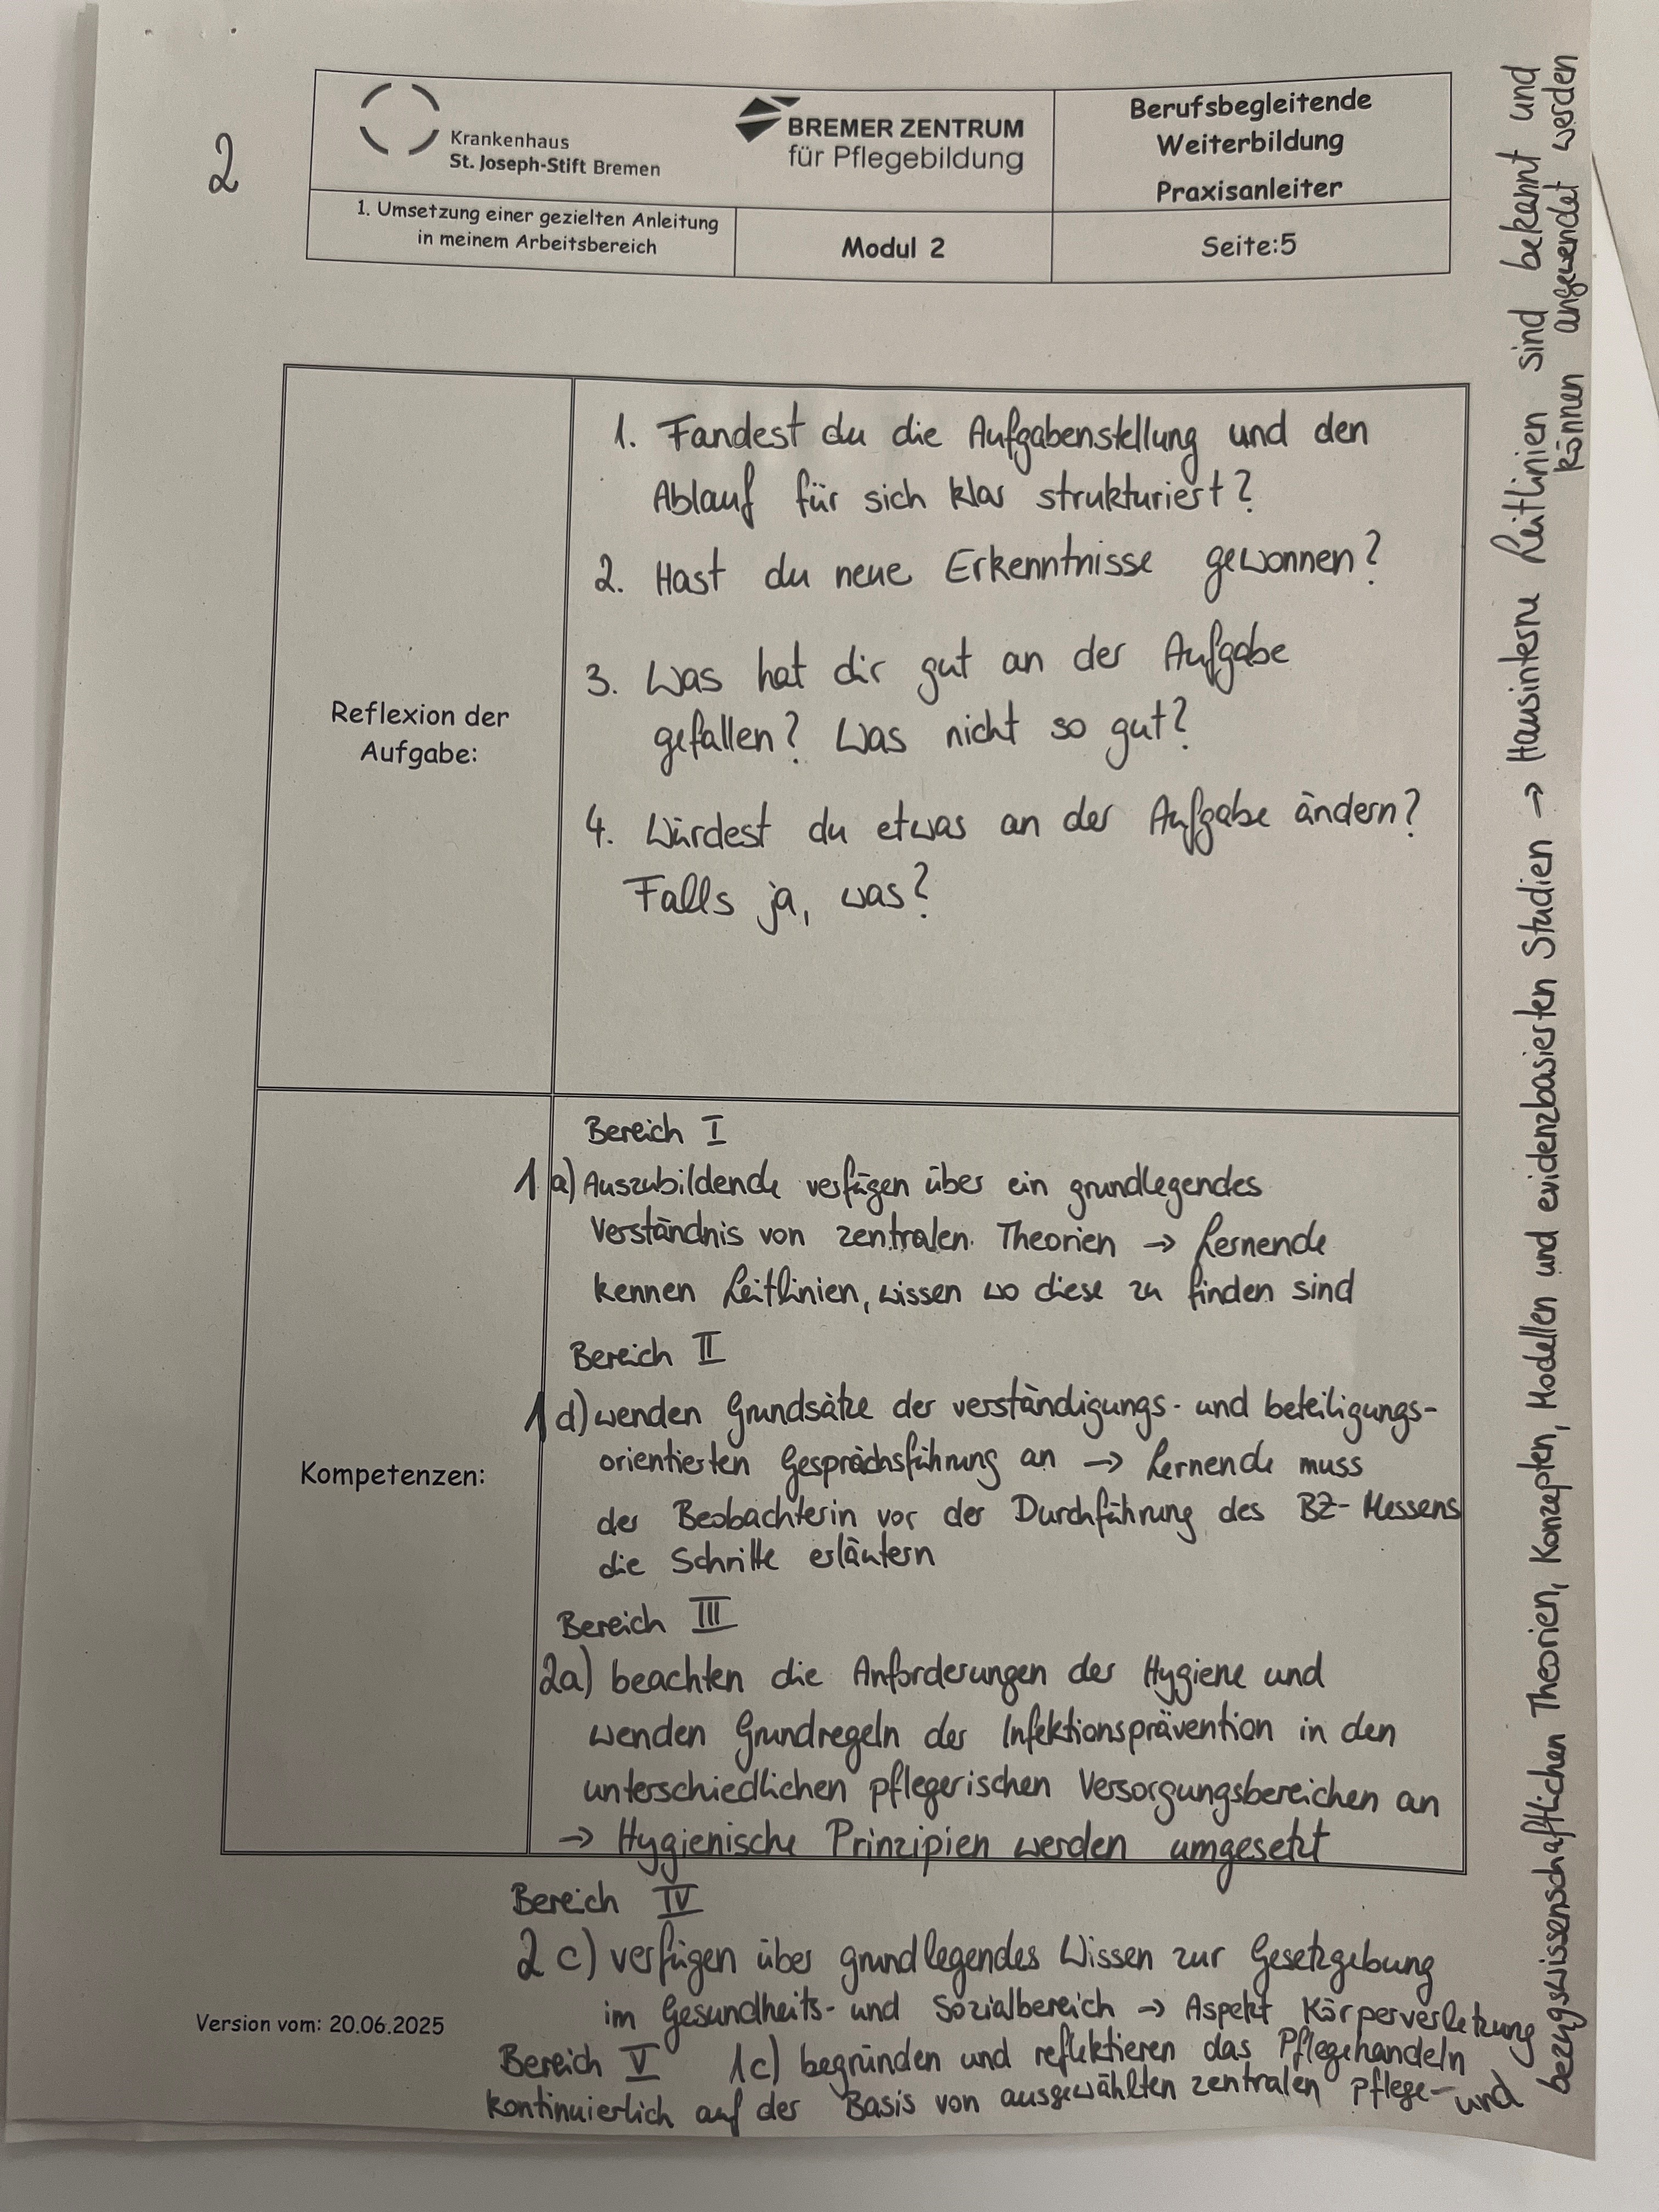 2
Krankenhaus
St. Joseph-Stift Bremen
BREMER ZENTRUM
für Pflegebildung
Berufsbegleitende
Weiterbildung
Praxisanleiter
1. Umsetzung einer gezielten Anleitung
in meinem Arbeitsbereich
Modul 2
Seite:5
Reflexion der
Aufgabe:
1. Fandest du die Aufgabenstellung und den
Ablauf für sich klar strukturiert?
2. Hast du neue Erkenntnisse gewonnen?
3. Was hat dir gut an der Aufgabe
gefallen? Was nicht so gut?
4. Würdest du etwas an der Aufgabe ändern?
Falls ja, was?
Kompetenzen:
Bereich I
1 a) Auszubildende verfügen über ein grundlegendes
Verständnis von zentralen Theorien → Lernende
kennen Leitlinien, wissen wo diese zu finden sind
Bereich II
1 d) wenden Grundsätze der verständigungs- und beteiligungs-
orientierten Gesprächsführung an → Lernende muss
der Beobachterin vor der Durchführung des BZ-Messens
die Schritte erläutern
Bereich III
2a) beachten die Anforderungen der Hygiene und
wenden Grundregeln der Infektionsprävention in den
unterschiedlichen pflegerischen Versorgungsbereichen an
→ Hygienische Prinzipien werden umgesetzt
Bereich IV
2 c) verfügen über grundlegendes Wissen zur Gesetzgebung
im Gesundheits- und Sozialbereich → Aspekt Körperverletzung
Version vom: 20.06.2025
Bereich V 1c) begründen und reflektieren das Pflegehandeln
kontinuierlich auf der Basis von ausgewählten zentralen pflege- und
bezugswissenschaftlichen Theorien, Konzepten, Modellen und evidenzbasierten Studien → Hausinterne Leitlinien sind bekannt und
können angewendet werden